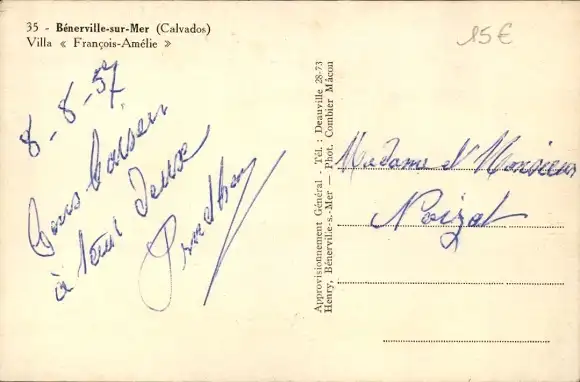 35 - Bénerville-sur-Mer (Calvados)
Villa « François-Amélie »
15€
8-8-57
Bons Baisers
à tous Deux
Approvisionnement Général - Tél. : Deauville 28-73
Henry, Bénerville-s.-Mer — Phot. Combier Mâcon
Madame et Monsieur
Noizat